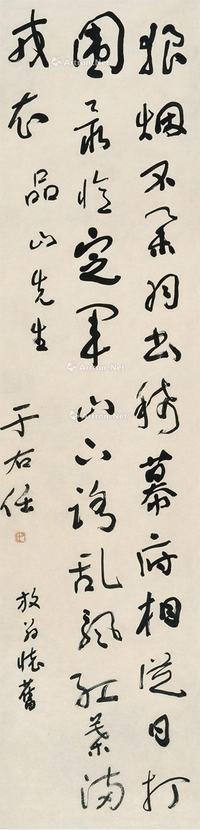 狼烟不举羽书稀幕府相从日打
围最忆定军山下路乱飘红叶满
戎衣
品山先生
于右任
放翁怀旧